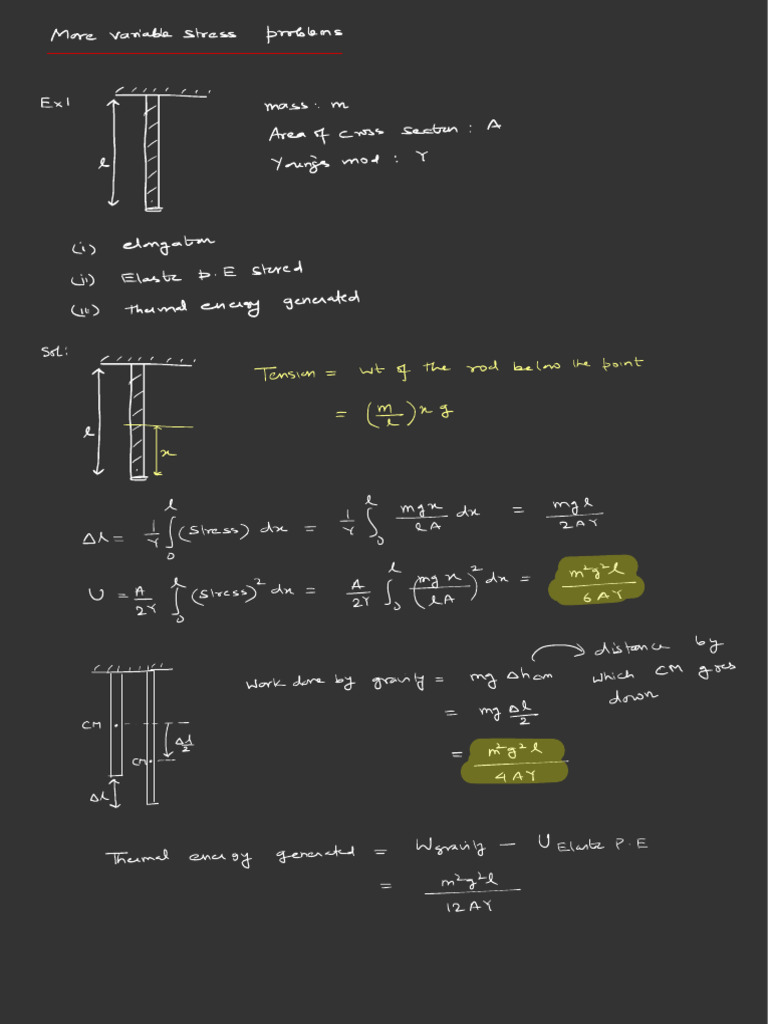 More variable stress problems
Ex1
mass : m
Area of cross section : A
Young's mod : Y
l
(i) elongation
(ii) Elastic P.E stored
(iii) Thermal energy generated
Sol:
Tension = wt of the rod below the point
= (m/l) x g
l
x
Δl = 1/Y ∫₀ˡ (stress) dx = 1/Y ∫₀ˡ mgx/lA dx = mgl/2AY
U = A/2Y ∫₀ˡ (stress)² dx = A/2Y ∫₀ˡ (mgx/lA)² dx = m²g²l/6AY
Work done by gravity = mg Δhcm
distance by
which CM goes
down
= mg Δl/2
= m²g²l/4AY
CM
Δl/2
CM
Δl
Thermal energy generated = Wgravity − U Elastic P.E
= m²g²l/12AY